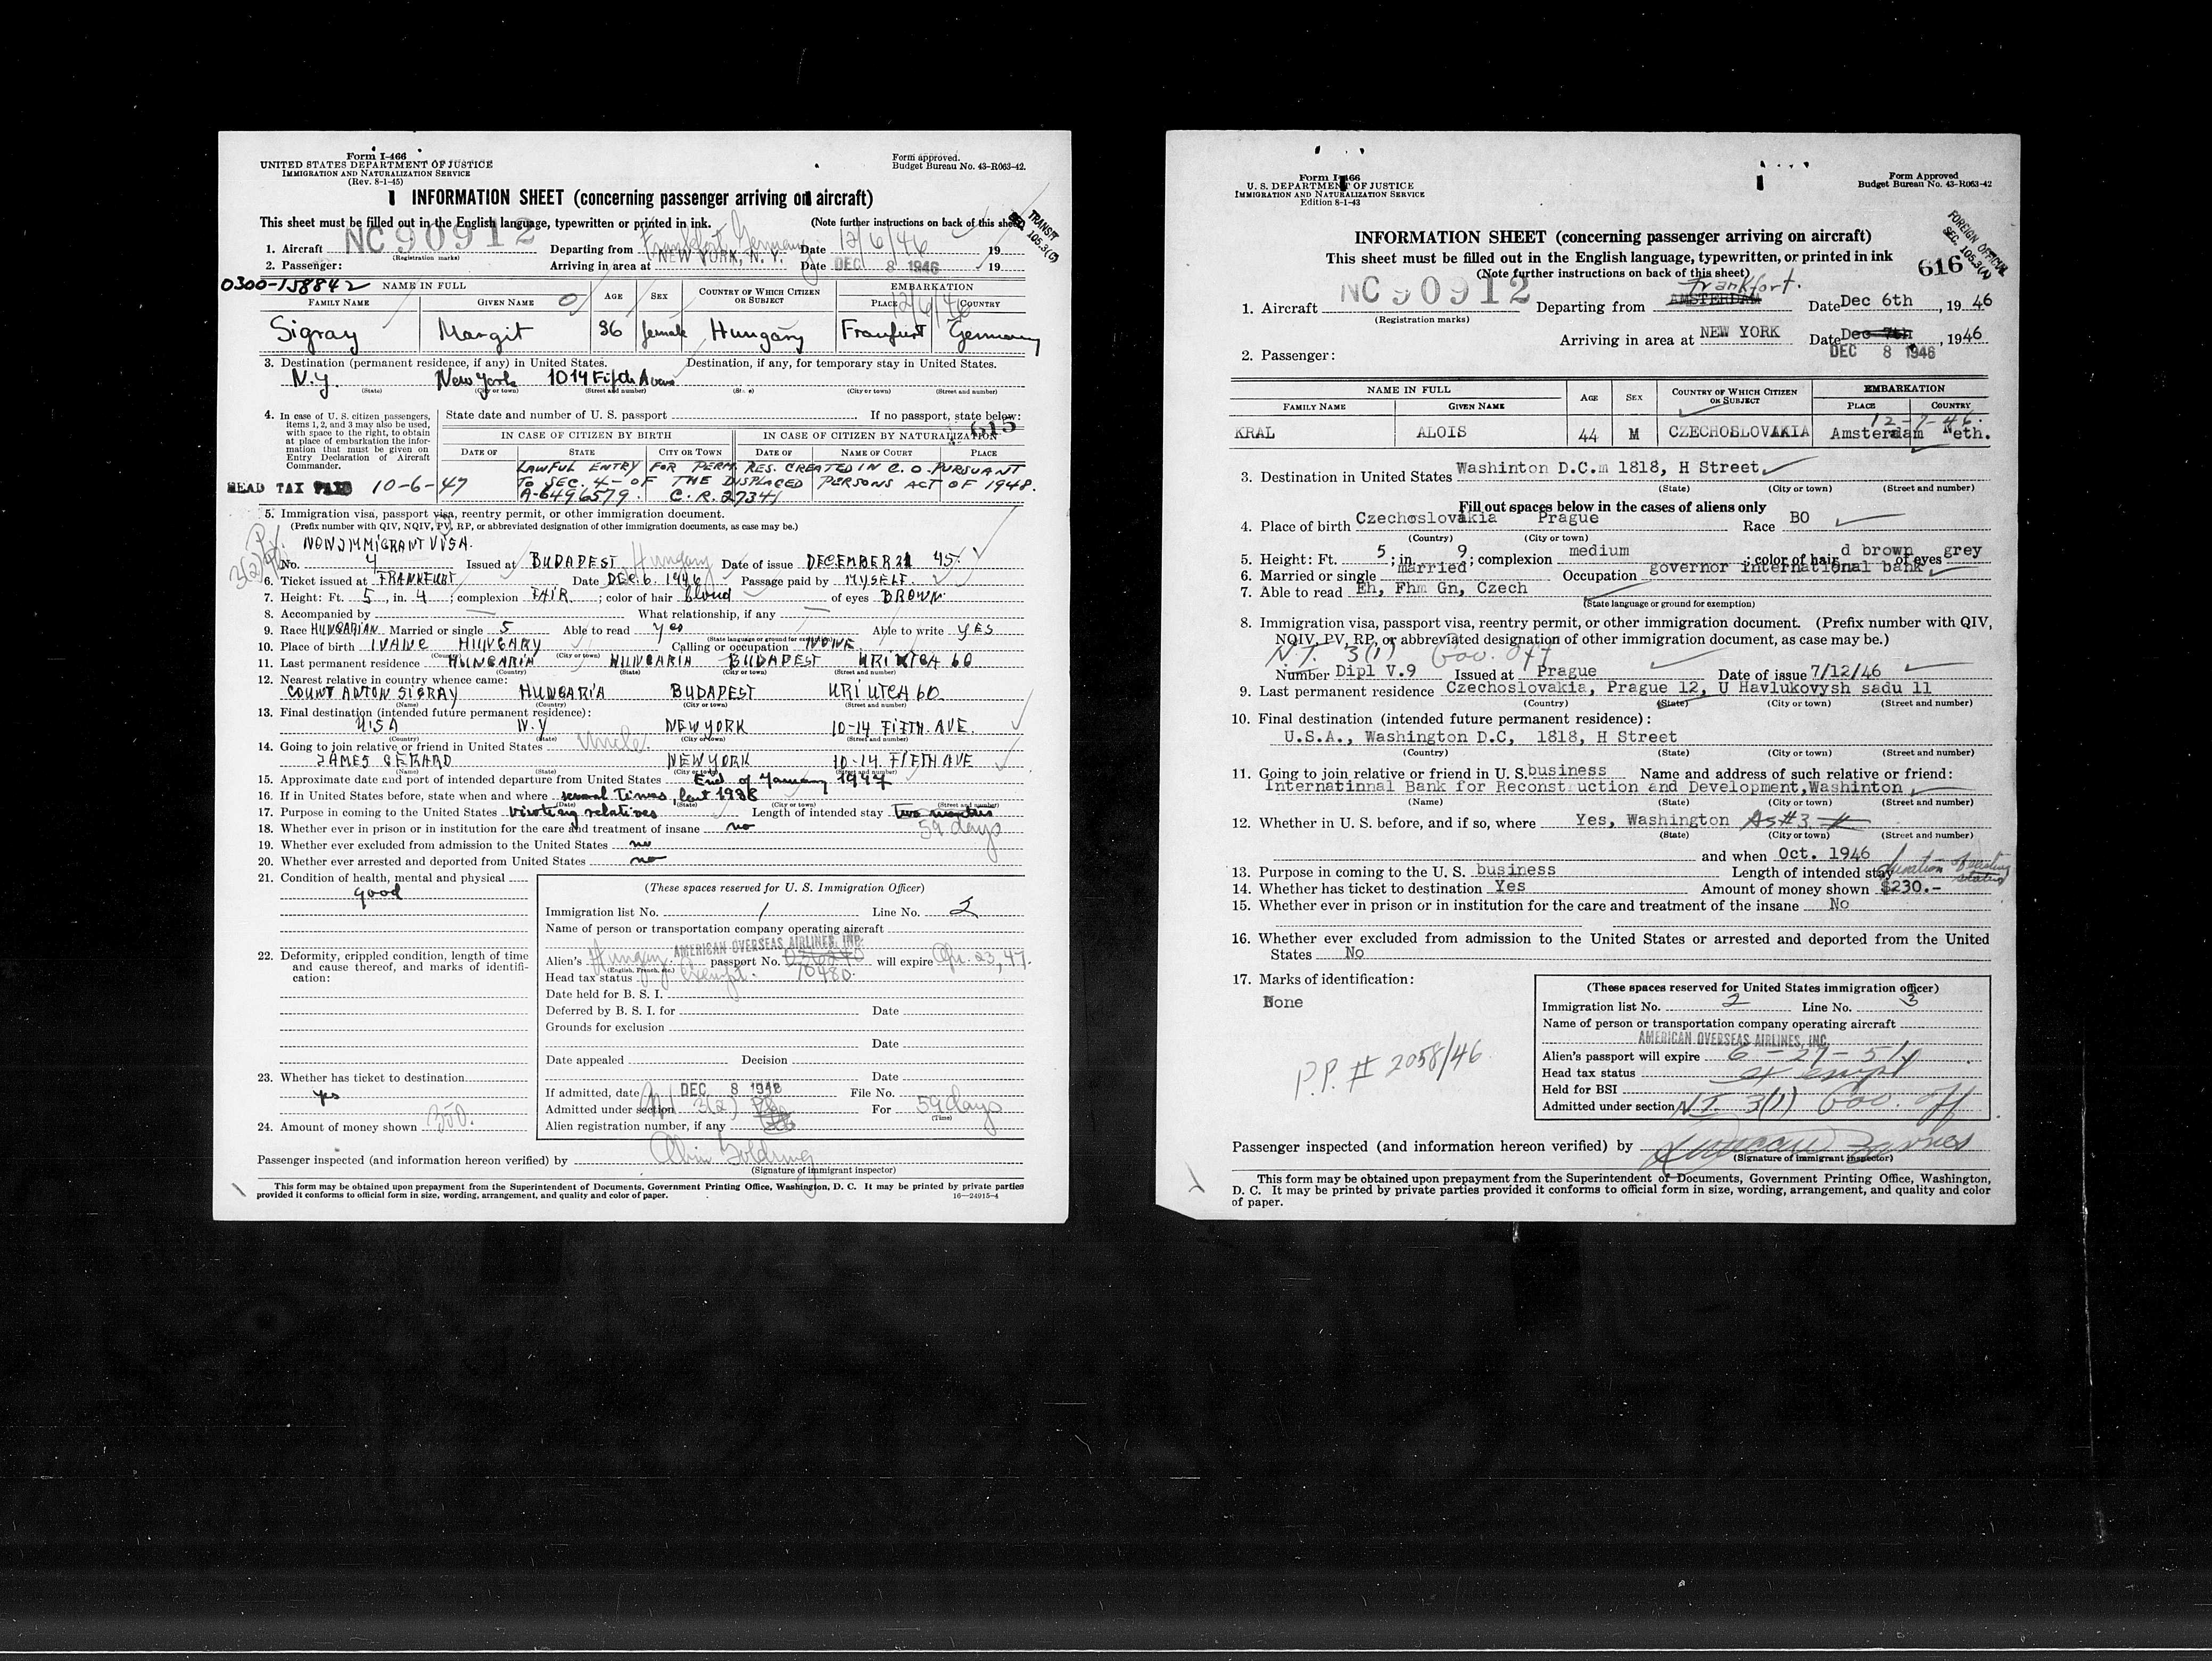 Form I-466
UNITED STATES DEPARTMENT OF JUSTICE
IMMIGRATION AND NATURALIZATION SERVICE
(Rev. 8-1-45)
Form approved.
Budget Bureau No. 43-R063-42.
INFORMATION SHEET (concerning passenger arriving on aircraft)
This sheet must be filled out in the English language, typewritten or printed in ink. (Note further instructions on back of this sheet)
TRANSIT
105.3(C)
1. Aircraft NC90912 Departing from Frankfort Germany Date 12/6/46 19
(Registration marks)
2. Passenger: Arriving in area at NEW YORK, N. Y. Date DEC 8 1946 19
0300-158842 NAME IN FULL AGE SEX COUNTRY OF WHICH CITIZEN OR SUBJECT EMBARKATION
FAMILY NAME GIVEN NAME PLACE COUNTRY
12/6/46
Sigray Margit 36 female Hungary Franfurt Germany
3. Destination (permanent residence, if any) in United States. Destination, if any, for temporary stay in United States.
N.Y. New York 1014 Fifth Avenue
(State) (City or town) (Street and number) (State) (City or town) (Street and number)
4. In case of U. S. citizen passengers, items 1, 2, and 3 may also be used, with space to the right, to obtain at place of embarkation the information that must be given on Entry Declaration of Aircraft Commander.
State date and number of U. S. passport If no passport, state below:
615
IN CASE OF CITIZEN BY BIRTH IN CASE OF CITIZEN BY NATURALIZATION
DATE OF STATE CITY OR TOWN DATE OF NAME OF COURT PLACE
LAWFUL ENTRY FOR PERM. RES. CREATED IN C.O. PURSUANT
TO SEC. 4- OF THE DISPLACED PERSONS ACT OF 1948.
A-6496579. C.R. 27341
HEAD TAX PAID 10-6-47
5. Immigration visa, passport visa, reentry permit, or other immigration document.
(Prefix number with QIV, NQIV, PV, RP, or abbreviated designation of other immigration documents, as case may be.)
NONIMMIGRANT VISA.
3(2)
No. 4 Issued at BUDAPEST Hungary Date of issue DECEMBER 21 45
6. Ticket issued at FRANKFURT Date DEC. 6. 1946 Passage paid by MYSELF.
7. Height: Ft. 5, in. 4; complexion FAIR; color of hair blond of eyes BROWN
8. Accompanied by — What relationship, if any —
9. Race HUNGARIAN Married or single S Able to read yes Able to write YES
(State language or ground for exemption)
10. Place of birth IVANC HUNGARY Calling or occupation NONE
(Country) (City or town)
11. Last permanent residence HUNGARIA HUNGARIA BUDAPEST URI UTCA 60
(Country) (State) (City or town) (Street and number)
12. Nearest relative in country whence came:
COUNT ANTON SIGRAY HUNGARIA BUDAPEST URI UTCA 60
(Name) (Country) (City or town) (Street and number)
13. Final destination (intended future permanent residence):
USA N.Y NEW YORK 10-14 FIFTH AVE.
(Country) (State) (City or town) (Street and number)
14. Going to join relative or friend in United States Uncle.
JAMES GERARD NEW YORK 10-14 FIFTH AVE
(Name) (State) (City or town) (Street and number)
15. Approximate date and port of intended departure from United States End of January 1947
16. If in United States before, state when and where several times, last 1938
(Date) (State) (City or town) (Street and number)
17. Purpose in coming to the United States visiting relatives Length of intended stay two months
59 days
18. Whether ever in prison or in institution for the care and treatment of insane no
19. Whether ever excluded from admission to the United States no
20. Whether ever arrested and deported from United States no
21. Condition of health, mental and physical
good
22. Deformity, crippled condition, length of time and cause thereof, and marks of identification:
23. Whether has ticket to destination
yes
24. Amount of money shown 350.
(These spaces reserved for U. S. Immigration Officer)
Immigration list No. 1 Line No. 2
Name of person or transportation company operating aircraft
AMERICAN OVERSEAS AIRLINES, INC.
Alien's Hungary passport No. 10480 will expire Apr. 23, 47.
(English, French, etc.)
Head tax status exempt.
Date held for B. S. I.
Deferred by B. S. I. for Date
Grounds for exclusion
Date
Date appealed Decision
Date
If admitted, date DEC 8 1946 File No.
Admitted under section 3(2) For 59 days
(Time)
Alien registration number, if any
Passenger inspected (and information hereon verified) by Alvin Golding
(Signature of immigrant inspector)
This form may be obtained upon prepayment from the Superintendent of Documents, Government Printing Office, Washington, D. C. It may be printed by private parties
provided it conforms to official form in size, wording, arrangement, and quality and color of paper. 16—24915-4
Form I-466
U. S. DEPARTMENT OF JUSTICE
IMMIGRATION AND NATURALIZATION SERVICE
Edition 8-1-43
Form Approved
Budget Bureau No. 43-R063-42
FOREIGN OFFICIAL
SEC. 105.3(A)
616
INFORMATION SHEET (concerning passenger arriving on aircraft)
This sheet must be filled out in the English language, typewritten, or printed in ink
(Note further instructions on back of this sheet)
Frankfort.
1. Aircraft NC90912 Departing from AMSTERDAM Date Dec 6th, 1946
(Registration marks)
Arriving in area at NEW YORK Date Dec 7th, 1946
DEC 8 1946
2. Passenger:
NAME IN FULL AGE SEX COUNTRY OF WHICH CITIZEN OR SUBJECT EMBARKATION
FAMILY NAME GIVEN NAME PLACE COUNTRY
12-7-46.
KRAL ALOIS 44 M CZECHOSLOVAKIA Amsterdam Neth.
3. Destination in United States Washinton D.C.m 1818, H Street
(State) (City or town) (Street and number)
Fill out spaces below in the cases of aliens only
4. Place of birth Czechoslovakia Prague Race BO
(Country) (City or town)
5. Height: Ft. 5; in. 9; complexion medium; color of hair d brown of eyes grey
6. Married or single married Occupation governor international bank
7. Able to read Eh, Fhm Gn, Czech
(State language or ground for exemption)
8. Immigration visa, passport visa, reentry permit, or other immigration document. (Prefix number with QIV,
NQIV, PV, RP, or abbreviated designation of other immigration document, as case may be.)
N.I. 3(1) Gov. Off
Number Dipl V.9 Issued at Prague Date of issue 7/12/46
9. Last permanent residence Czechoslovakia, Prague 12, U Havlukovysh sadu 11
(Country) (State) (City or town) (Street and number)
10. Final destination (intended future permanent residence):
U.S.A., Washington D.C, 1818, H Street
(Country) (State) (City or town) (Street and number)
11. Going to join relative or friend in U. S. business Name and address of such relative or friend:
Internatinnal Bank for Reconstruction and Development, Washinton
(Name) (State) (City or town) (Street and number)
12. Whether in U. S. before, and if so, where Yes, Washington As #3
(State) (City or town) (Street and number)
and when Oct. 1946
13. Purpose in coming to the U. S. business Length of intended stay duration of status
14. Whether has ticket to destination Yes Amount of money shown $230.-
15. Whether ever in prison or in institution for the care and treatment of the insane No
16. Whether ever excluded from admission to the United States or arrested and deported from the United
States No
17. Marks of identification:
None
P.P. # 2058/46
(These spaces reserved for United States immigration officer)
Immigration list No. 2 Line No. 3
Name of person or transportation company operating aircraft
AMERICAN OVERSEAS AIRLINES, INC
Alien's passport will expire 6-27-51
Head tax status exempt
Held for BSI
Admitted under section N.I. 3(1) Gov. Off
Passenger inspected (and information hereon verified) by
(Signature of immigrant inspector)
This form may be obtained upon prepayment from the Superintendent of Documents, Government Printing Office, Washington,
D. C. It may be printed by private parties provided it conforms to official form in size, wording, arrangement, and quality and color
of paper.